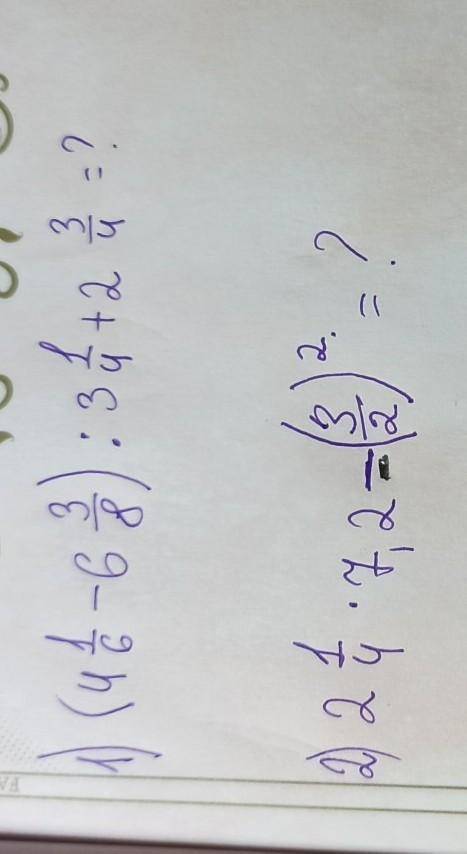 1) (4 1/6 - 6 3/8) : 3 1/4 + 2 3/4 = ?
2) 2 1/4 · 7,2 - (3/2)² = ?